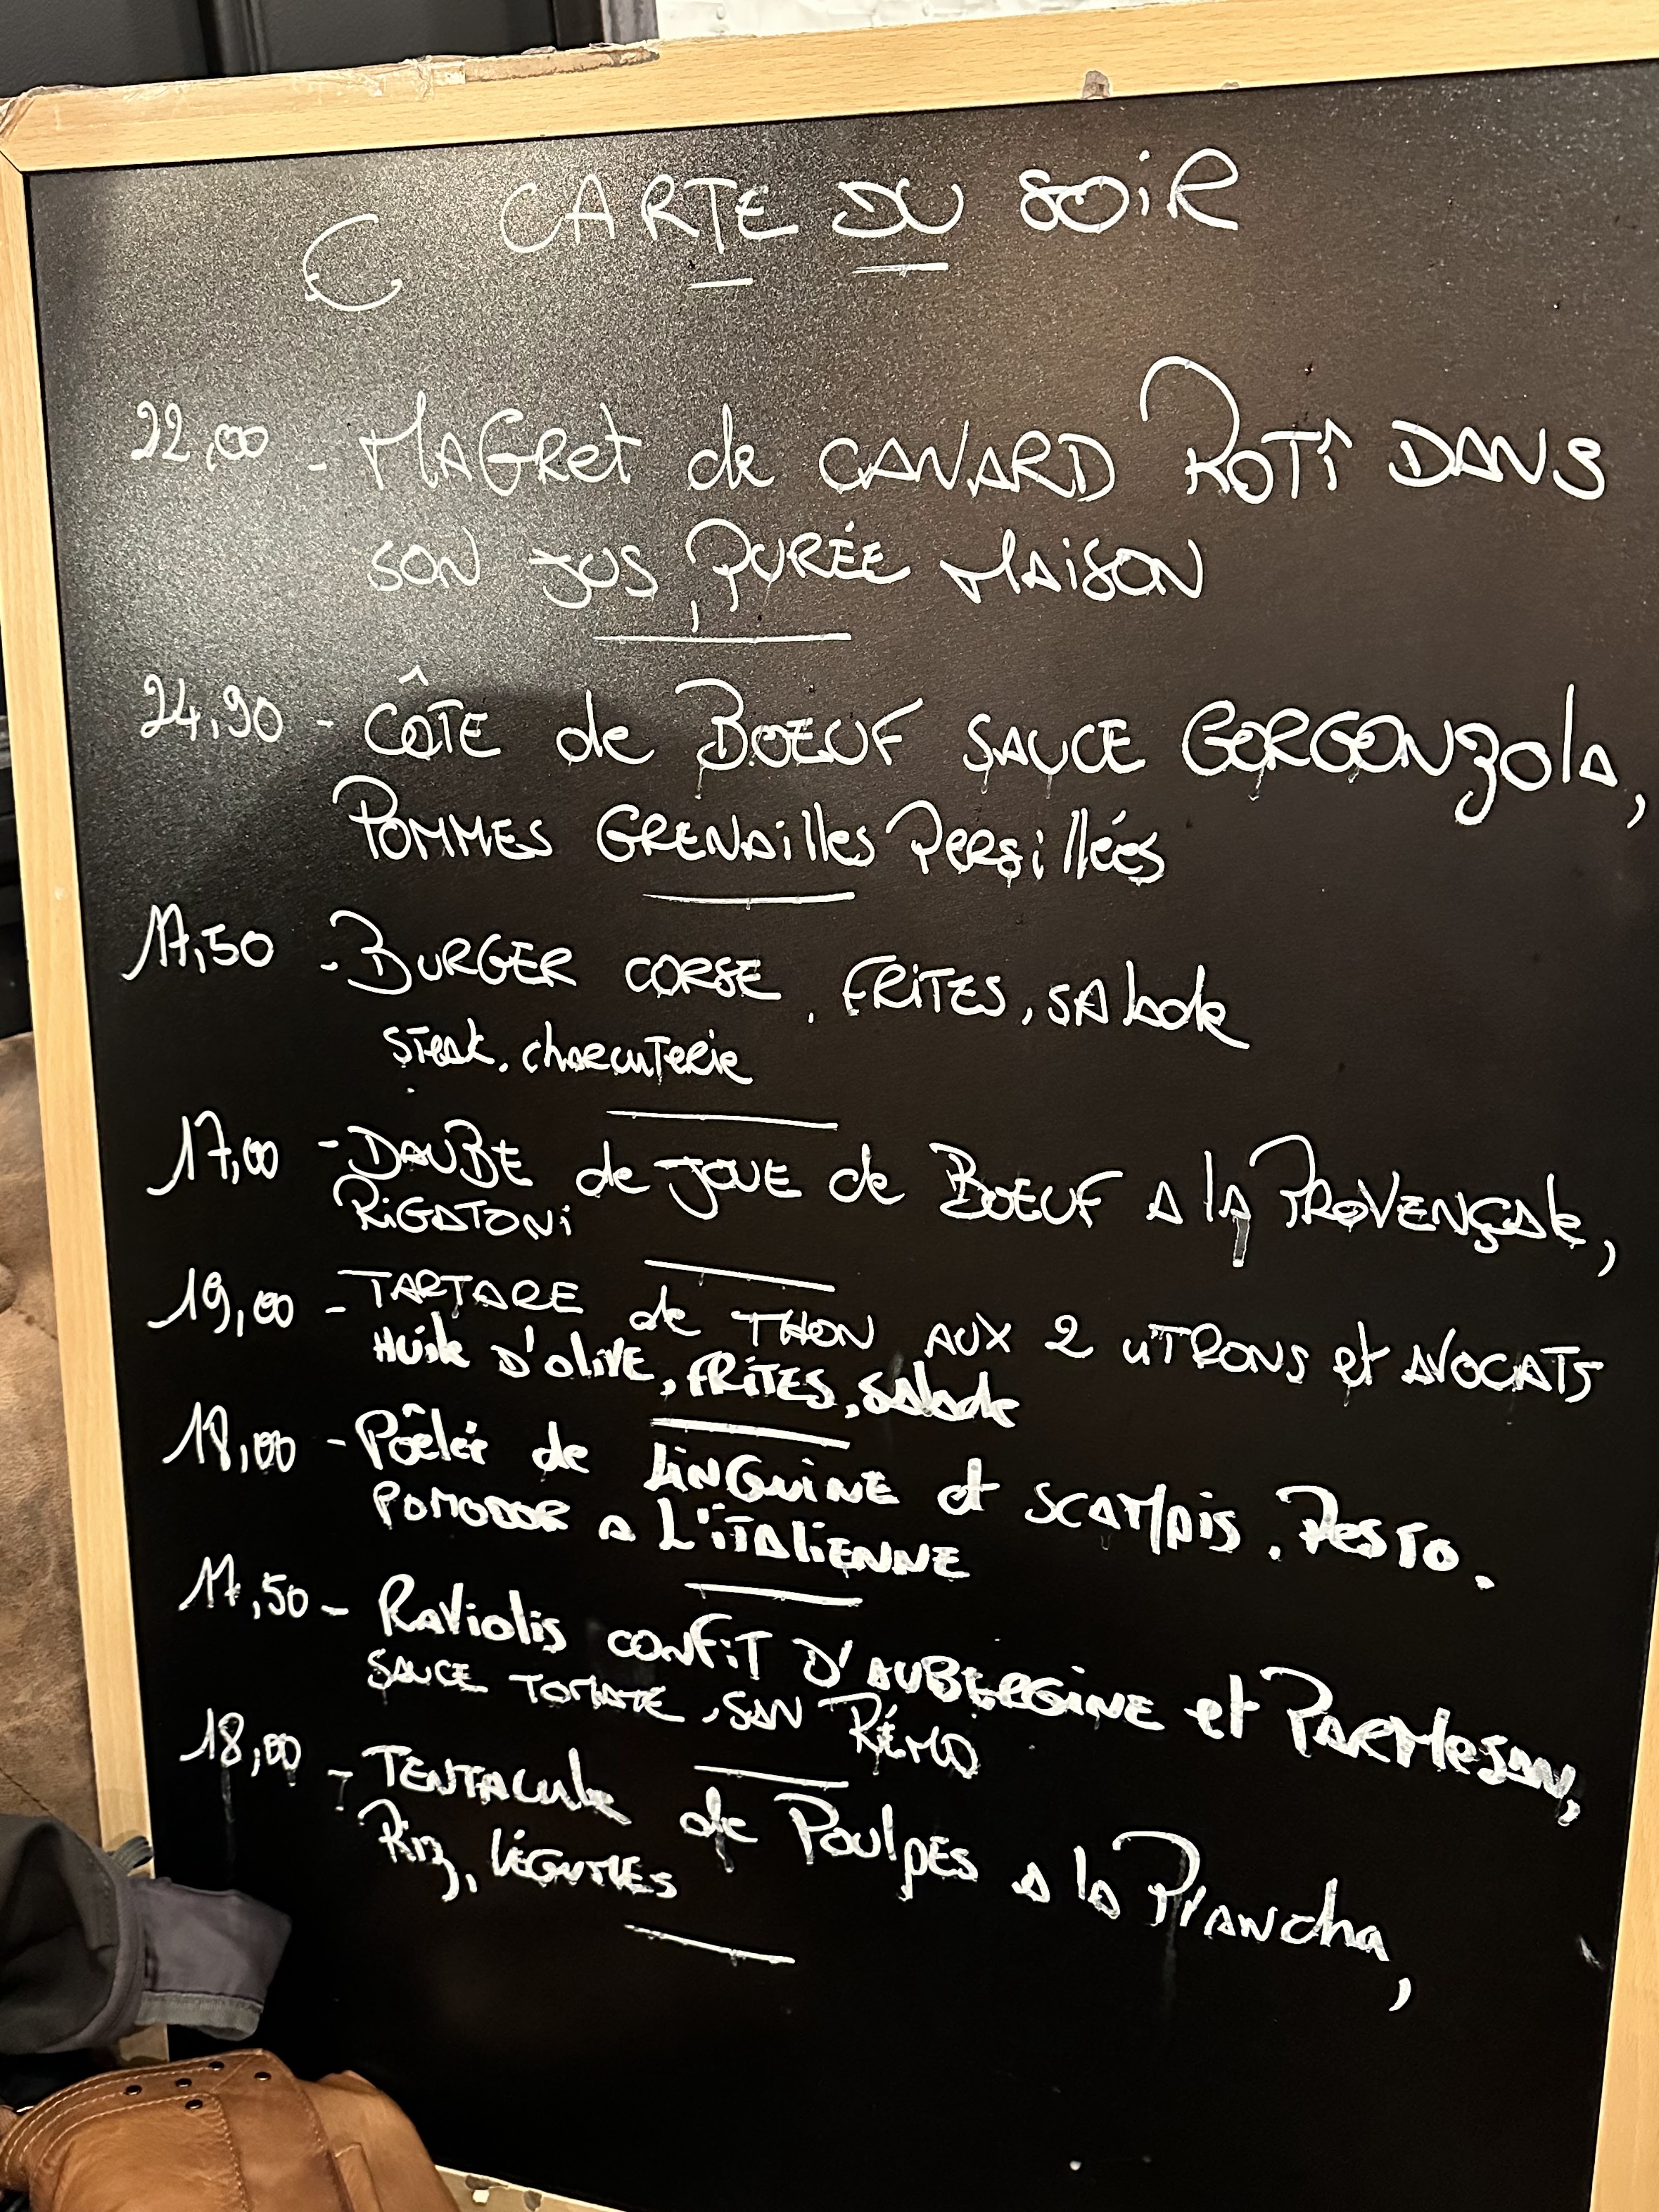 CARTE DU SOIR
€
22,00 - MAGRet de CANARD ROTî DANS
SON JUS, PURÉE MAiSON
24,90 - CÔTE de BOEUF SAUCE GORGONzolA,
POMMES GRENAilles PeRSillées
17,50 - BURGER CORSE, FRiTES, SAlade
STeak, charcuTeRie
17,00 - DAUBE de JOUE de BOEUF A lA PROVENÇAle,
RiGATONi
19,00 - TARTARE de THON AUX 2 CiTRONS et AVOCATS
HUile D'OliVE, FRiTES, SAlade
18,00 - Pôelée de LiNGUiNE et SCAMpis, PesTo.
POMODOR A L'iTAliENNE
17,50 - RAViolis CONFiT D'AUBERGiNE et PARMeSAN,
SAUCE TOMATE, SAN RÉMO
18,00 - TENTACUle de PoulpES A lA PlANcha,
Riz, lÉGUMES